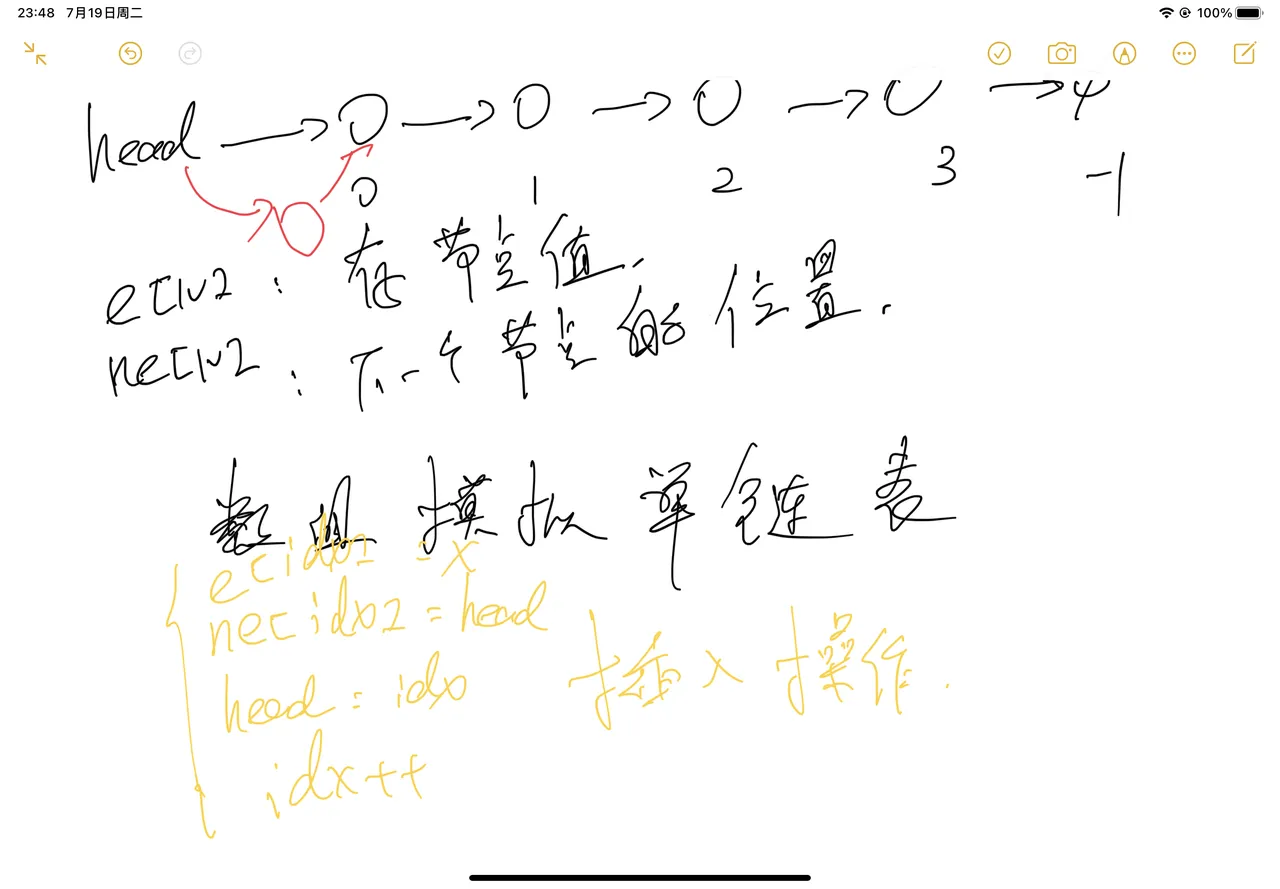 23:48 7月19日周二
100%
head → 0 → 0 → 0 → 0 → φ
0 1 2 3 -1
e[N]: 存节点值.
ne[N]: 下一个节点的位置.
数组模拟单链表
e[idx] = x
ne[idx] = head
head = idx
插入操作.
idx++